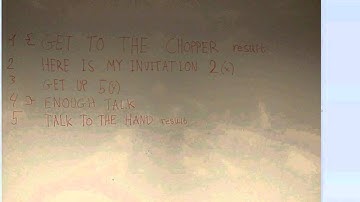 1 GET TO THE CHOPPER result
2 HERE IS MY INVITATION 2(x)
3 GET UP 5(i)
4 ENOUGH TALK
5 TALK TO THE HAND result